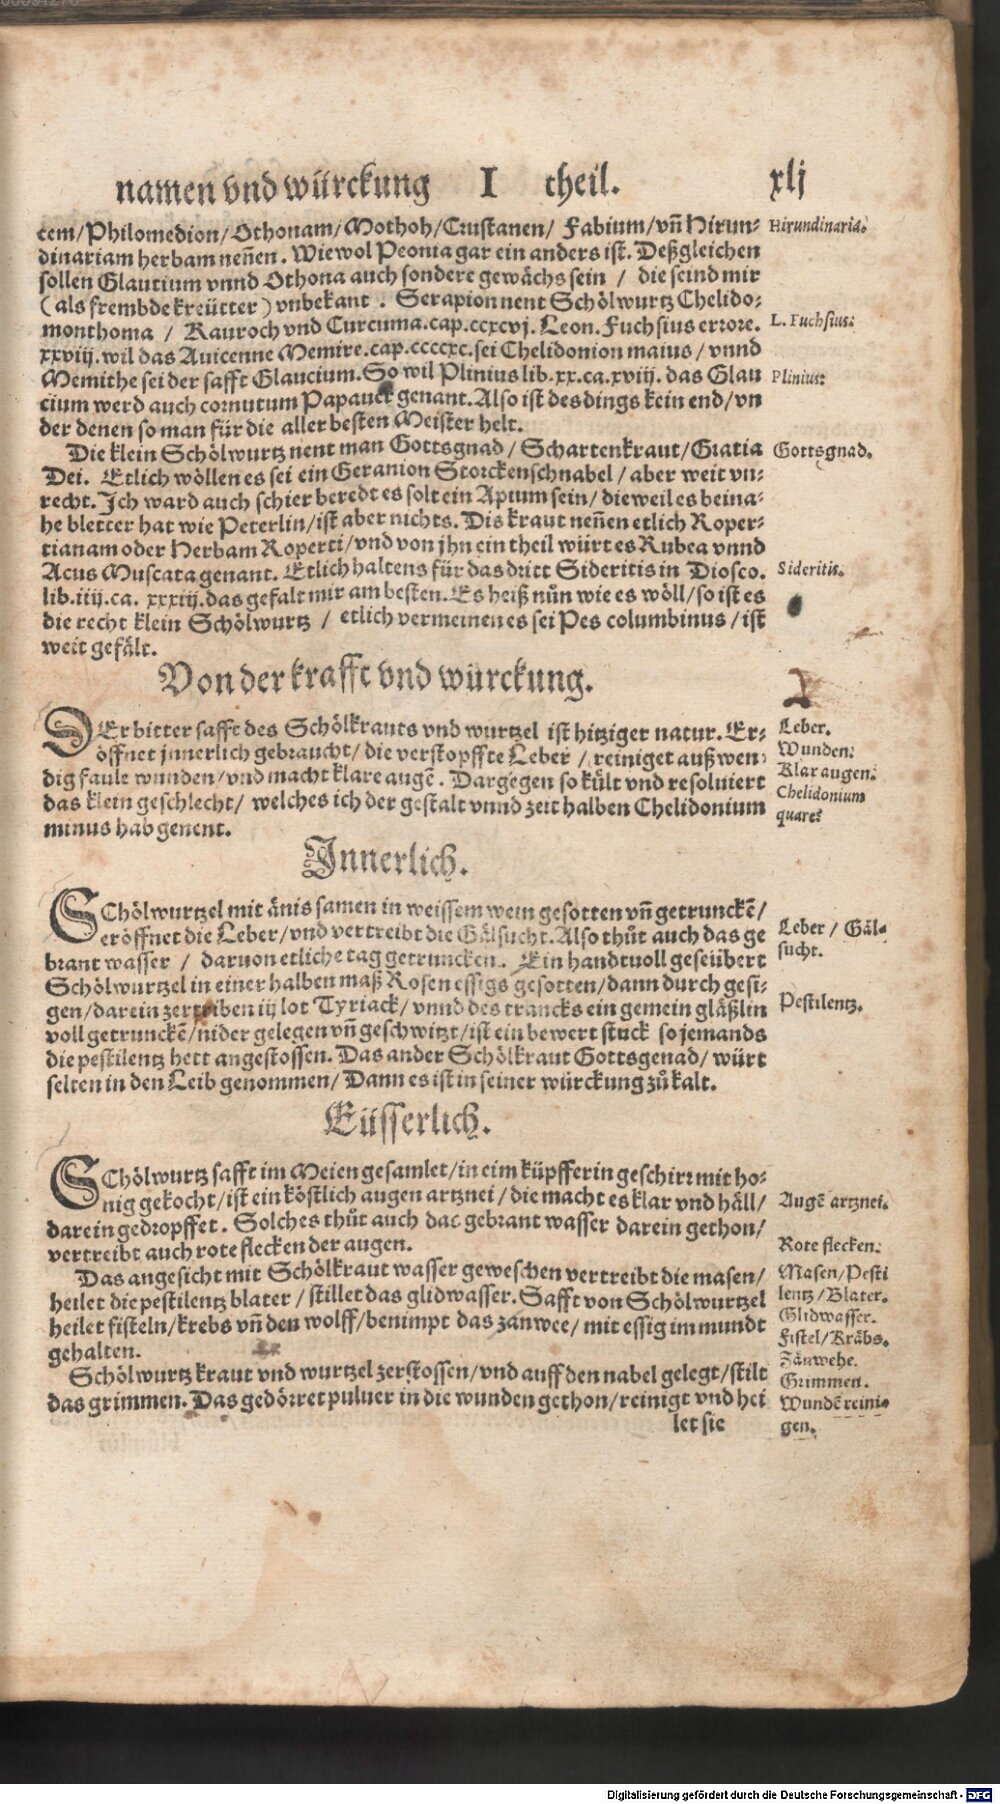 namen vnd würckung I theil. xlj
tem/Philomedion/Othonam/Mothoh/Crustanen/ Fabium/vñ Hirun-
dinariam herbam neñen. Wiewol Peonia gar ein anders ist. Deßgleichen
sollen Glautium vnnd Othona auch sondere gewächs sein / die seind mir
(als frembde kreütter) vnbekant. Serapion nent Schölwurtz Chelido-
monthoma / Kauroch vnd Curcuma.cap.ccxcvj. Leon. Fuchsius errore.
xxviij. wil das Auicenne Memire.cap.ccccxc.sei Chelidonion maius/vnnd
Memithe sei der safft Glaucium. So wil Plinius lib.xx.ca.xviij. das Glau
cium werd auch cornutum Papauer genant. Also ist des dings kein end/vn
der denen so man für die aller besten Meister helt.
Die klein Schölwurtz nent man Gottsgnad/Schartenkraut/Gratia
Dei. Etlich wöllen es sei ein Geranion Storckenschnabel/aber weit vn-
recht. Ich ward auch schier beredt es solt ein Apium sein/dieweil es beina-
he bletter hat wie Peterlin/ist aber nichts. Dis kraut neñen etlich Roper-
tianam oder Herbam Roperti/vnd von jhn ein theil würt es Rubea vnnd
Acus Muscata genant. Etlich haltens für das dritt Sideritis in Diosco.
lib.iiij.ca. xxxiij.das gefalt mir am besten. Es heiß nůn wie es wöll/so ist es
die recht klein Schölwurtz / etlich vermeinen es sei Pes columbinus/ist
weit gefält.
Hirundinaria.
L. Fuchsius:
Plinius:
Gottsgnad.
Sideritis.
Von der krafft vnd würckung.
DEr bitter safft des Schölkrauts vnd wurtzel ist hitziger natur. Er-
öffnet jnnerlich gebraucht/die verstopffte Leber / reiniget außwen-
dig faule wunden/vnd macht klare augẽ. Dargegen so kült vnd resoluiert
das klein geschlecht/ welches ich der gestalt vnnd zeit halben Chelidonium
minus hab genent.
Leber.
Wunden:
Klar augen:
Chelidonium
quare?
Innerlich.
SChölwurtzel mit änis samen in weissem wein gesotten vñ getrunckẽ/
eröffnet die Leber/vnd vertreibt die Gälsucht. Also thůt auch das ge
brant wasser / daruon etliche tag getruncken. Ein handtuoll geseübert
Schölwurtzel in einer halben maß Rosen essigs gesotten/dann durch gesi-
gen/darein zertriben ij lot Tyriack/vnnd des trancks ein gemein gläßlin
voll getrunckẽ/nider gelegen vñ geschwitzt/ist ein bewert stuck so jemands
die pestilentz hett angestossen. Das ander Schölkraut Gottsgenad/ würt
selten in den Leib genommen/Dann es ist in seiner würckung zů kalt.
Leber / Gäl-
sucht.
Pestilentz.
Eüsserlich.
SChölwurtz safft im Meien gesamlet/in eim küpfferin geschirr mit ho-
nig gekocht/ist ein köstlich augen artznei/die macht es klar vnd häll/
darein gedropffet. Solches thůt auch das gebrant wasser darein gethon/
vertreibt auch rote flecken der augen.
Das angesicht mit Schölkraut wasser geweschen vertreibt die masen/
heilet die pestilentz blater/stillet das glidwasser. Safft von Schölwurtzel
heilet fisteln/krebs vñ den wolff/benimpt das zanwee/ mit essig im mundt
gehalten.
Schölwurtz kraut vnd wurtzel zerstossen/vnd auff den nabel gelegt/stilt
das grimmen. Das gedörret puluer in die wunden gethon/reinigt vnd hei
let sie
Augẽ artznei.
Rote flecken:
Masen/Pesti
lentz/Blater.
Glidwasser.
Fistel/Kräbs.
Zänwehe.
Grimmen.
Wundẽ reini-
gen.
Digitalisierung gefördert durch die Deutsche Forschungsgemeinschaft - DFG